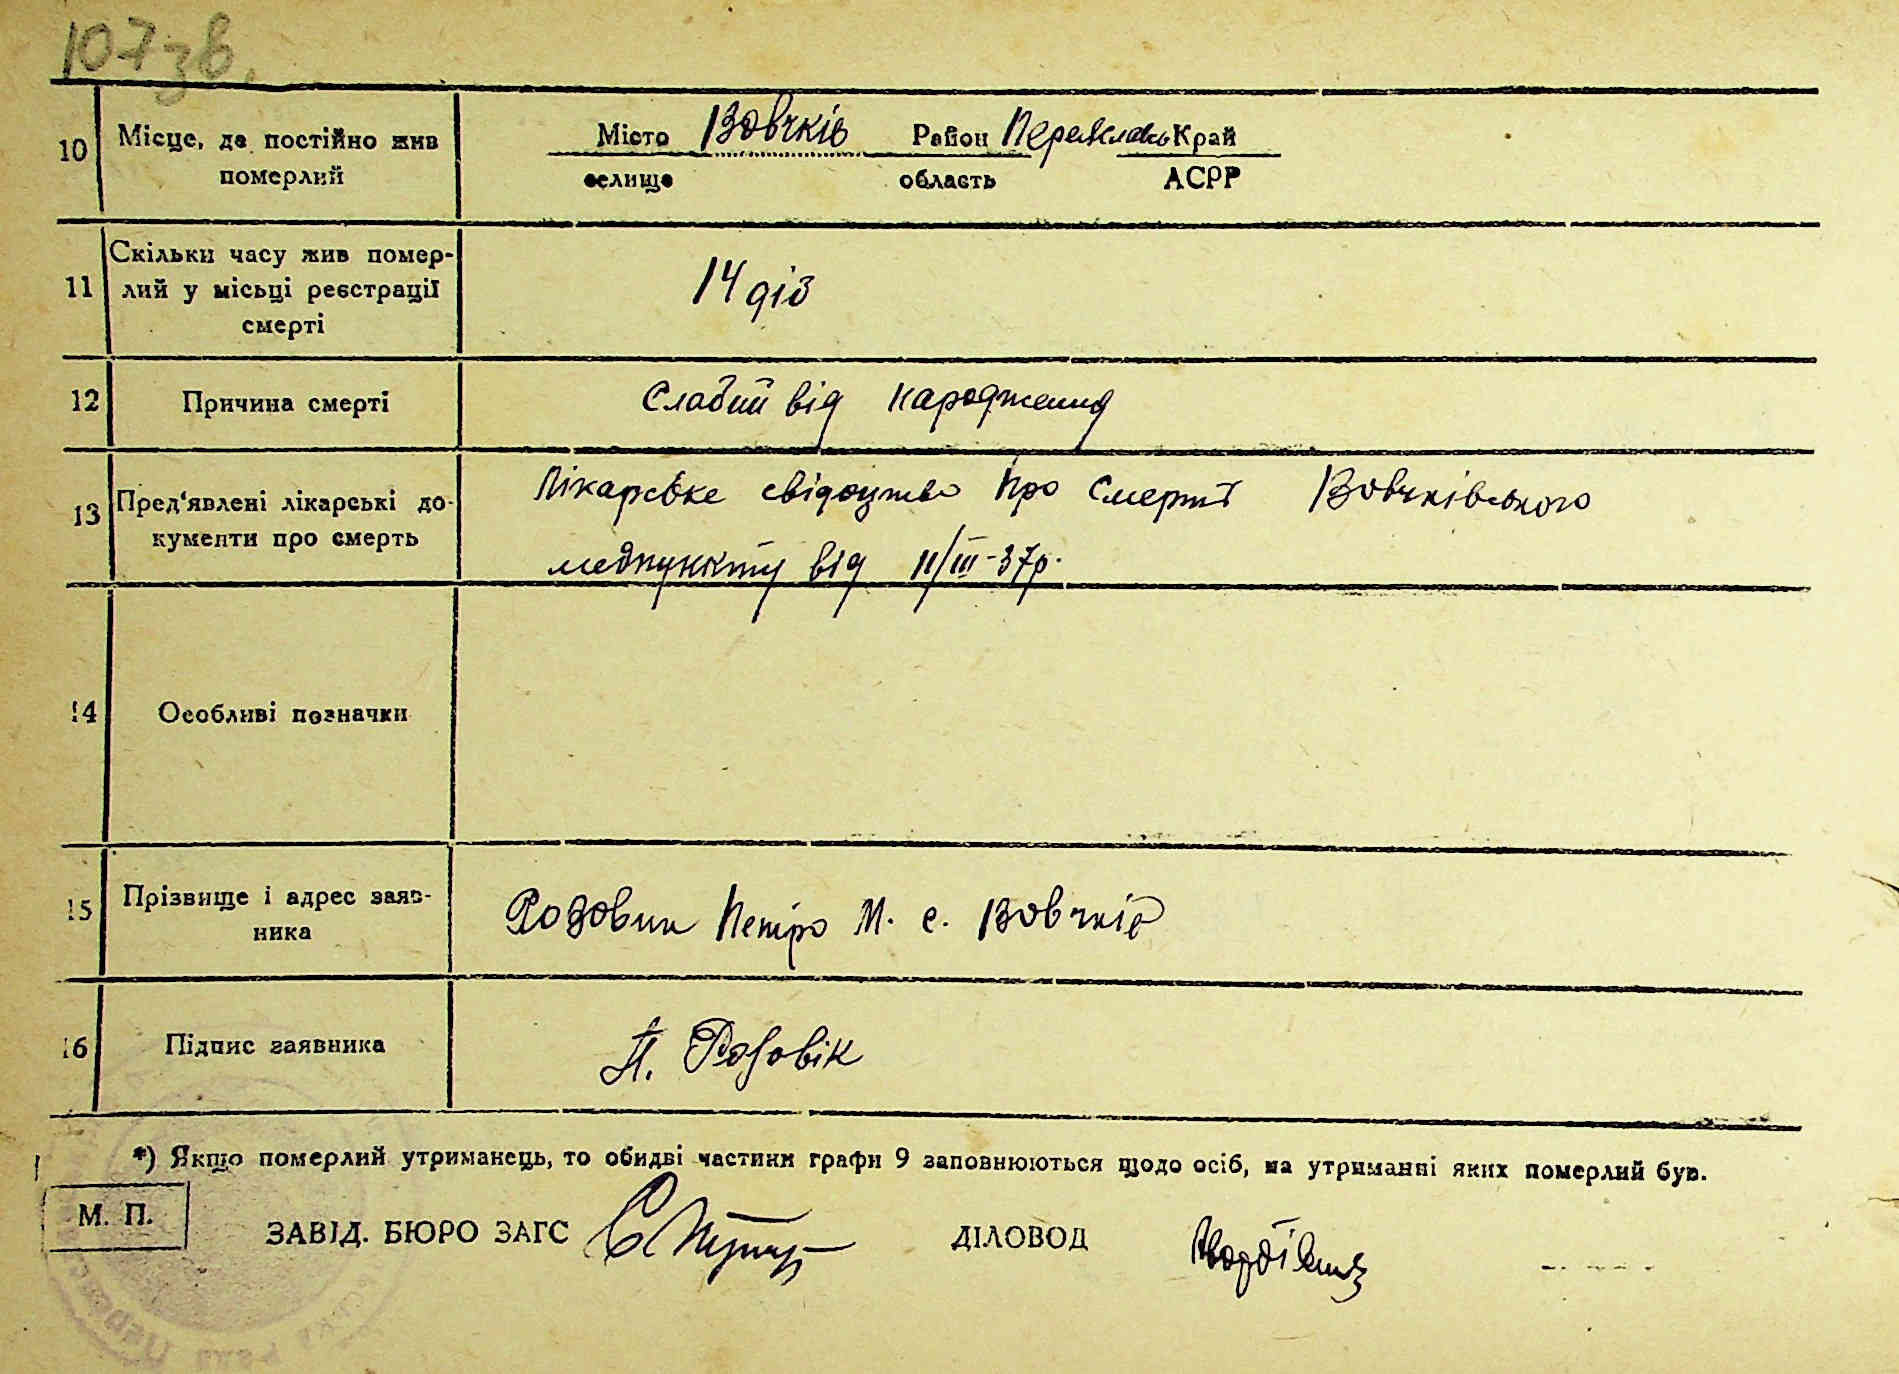 107зв.
10 Місце, де постійно жив Місто Вовчків Район Переяславсь Край
померлий селище область АСРР
Скільки часу жив помер-
11 лий у місьці реєстрації 14 діб
смерті
12 Причина смерті Слабий від народження
13 Пред'явлені лікарські до- Лікарське свідоцтво про смерть Вовчківського
кументи про смерть медпункту від 11/III-37р.
14 Особливі позначки
15 Прізвище і адрес заяв- Розовик Петро М. с. Вовчків
ника
16 Підпис заявника П. Розовік
*) Якщо померлий утриманець, то обидві частини графи 9 заповнюються щодо осіб, на утриманні яких померлий був.
М. П.
ЗАВІД. БЮРО ЗАГС ДІЛОВОД